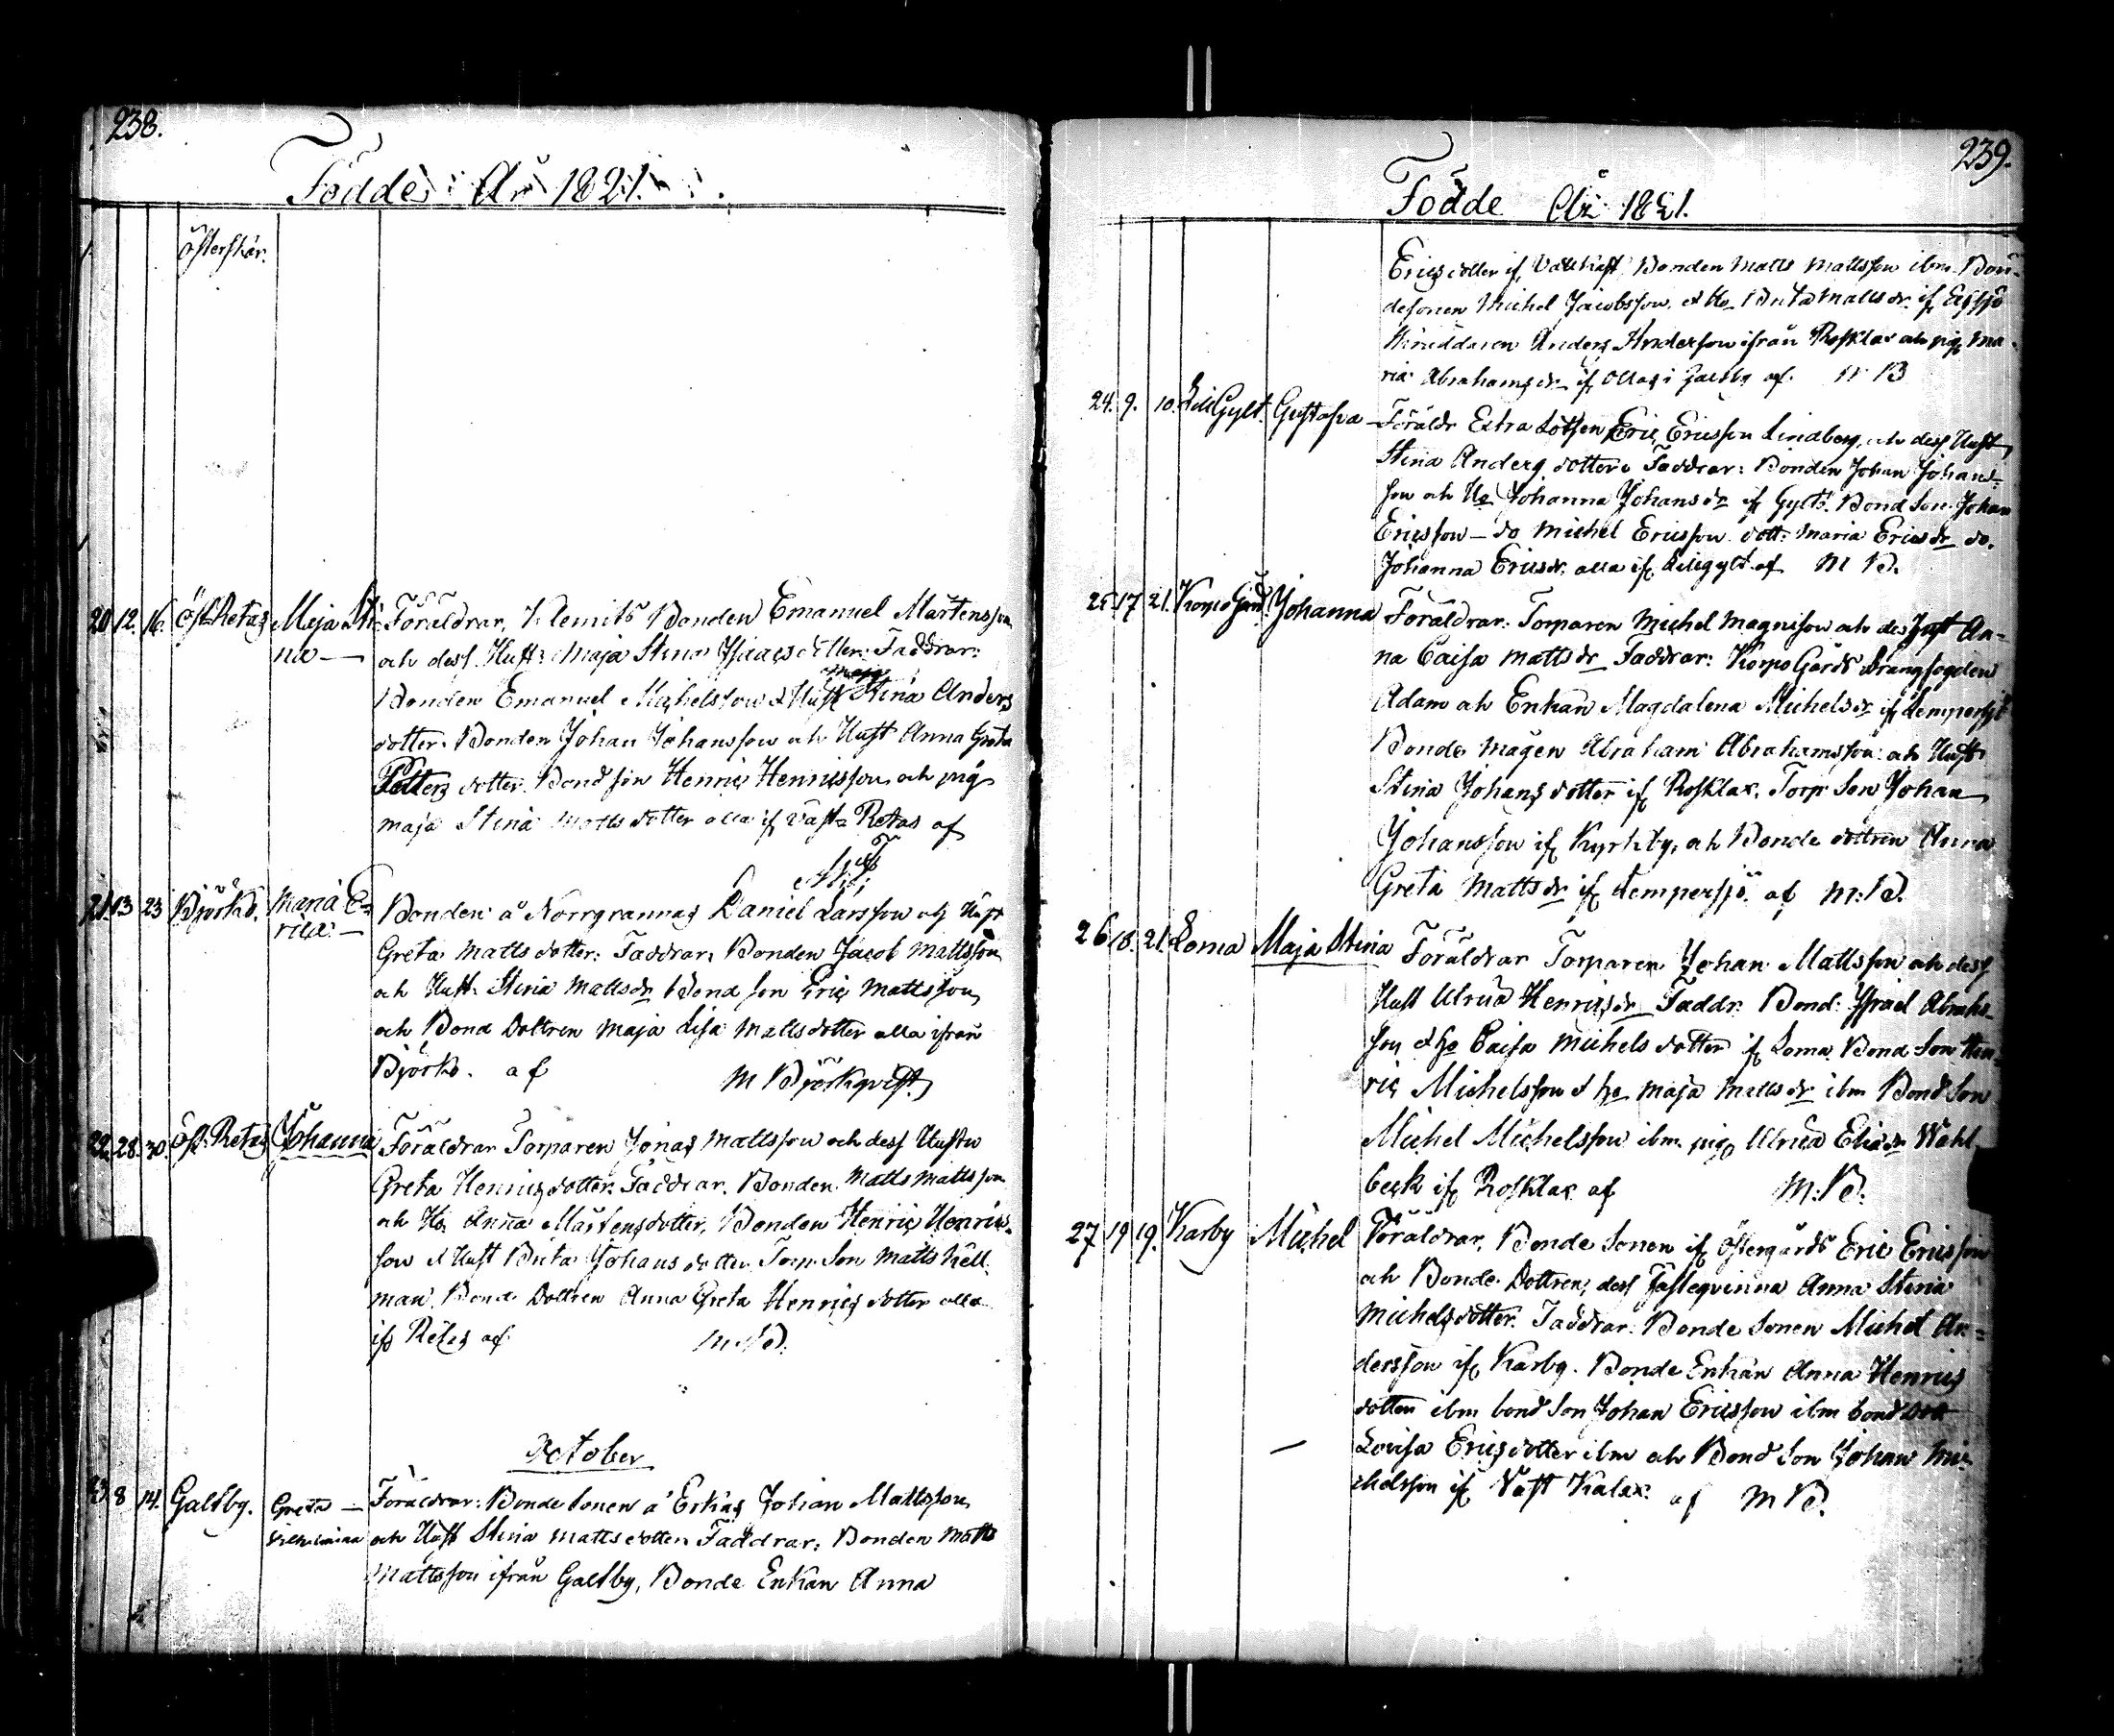 238.
Födde i År 1821.
Österskär.
20 12. 16. Öst Retas Maja Sti- Föräldrar, Klemits Bonden Emanuel Mårtensson
na — och dess Hust: Maja Stina Isaacs dotter. Faddrar:
Maja
Bonden Emanuel Michelsson & Hust Stina Anders
dotter. Bonden Johan Johansson och Hust Anna Greta
Petters dotter. Bond son Henric Henricsson och pig
Maja Stina Matts dotter alla if västr Retas af
21 13 23 Björkö. Maria E- Bonden å Norrgrannas Daniel Larsson och Hust
rica. — Greta Matts dotter: Faddrar, Bonden Jacob Mattsson
och Hust. Stina Mattsdr Bond son Eric Mattsson
och Bond Dottren Maja Lisa Mattsdotter alla ifrån
Björkö. af M Björkqvist
22. 28. 30. Öst. Retas Johanna Föräldrar Torparen Jonas Mattsson och dess Hustru
Greta Henrics dotter. Faddrar. Bonden Matts Mattsson
och Ho Anna Mårtensdotter, Bonden Henric Henrics-
son & Hust Brita Johans dotter Torp. Son Matts Hell-
man. Bond Dottren Anna Greta Henrics dotter alla
if Retes af M. B.
October
23 8 14. Galtby. Greta — Föräldrar: Bonde Sonen å Erkas Johan Mattsson
Vilhelmina och Hust Stina Matts dotter. Faddrar: Bonden Matts
Mattsson ifrån Galtby, Bonde Enkan Anna
239.
Födde År 1821.
Erics dotter if, Bonden Matts Mattsson ibm. Bon-
desonen Michel Jacobsson, & Ho Brita Mattsdr. if
Anders Andersson ifrån Rosklax och pig Ma-
ria Abrahamsdr if Ollas i Galtby af. M B
24. 9. 10. Lill Gylt. Gustafva — Föräldr Extra Lotsen Eric Ericsson Lindberg, och dess Hust
Stina Anders dotter. Faddrar: Bonden Johan Johans-
son och Ho Johanna Johansdr if Gylto. Bond Son Johan
Ericsson — do Michel Ericsson dott: Maria Ericsdr do.
Johanna Ericsdr. alla if. Lillgylt. af M B.
25 17 21. Korpo Gård Johanna Föräldrar. Torparen Michel Magnusson och des Hust An-
na Caisa Mattsdr Faddrar: Korpo Gårds Drängfogden
Adam och Enkan Magdalena Michelsdr if Lempersjö
Bonde Mågen Abraham Abrahamsson och Hust
Stina Johans dotter if Rosklax. Torp Son Johan
Johansson if Kyrkby, och Bonde dottren Anna
Greta Mattsdr if Lempersjö. af M: B.
26 18. 21. Loma Maja Stina Föräldrar Torparen Johan Mattsson och dess
Hust Ulrica Henricsdr Faddr. Bond: Israel Abrahs-
son & ho Caisa Michels dotter if Loma, Bond Son Hen-
ric Michelsson & ho Maja Mattsdr ibm Bond Son
Michel Michelsson ibm. pig Ulrica Eliædr Wahl-
beck if Rosklax af M: B.
27 19 19. Karby Michel Föräldrar, Bonde Sonen if Östergårds Eric Ericsson
och Bonde Dottren, dess Fästeqvinna Anna Stina
Michelsdotter. Faddrar: Bonde Sonen Michel An-
dersson if Karby. Bonde Enkan Anna Henrics
dotter ibm bond Son Johan Ericsson ibm bond Dott
Lovisa Ericsdotter ibm och Bond Son Johan Mi-
chelsson if Väst Kalax. af M B.